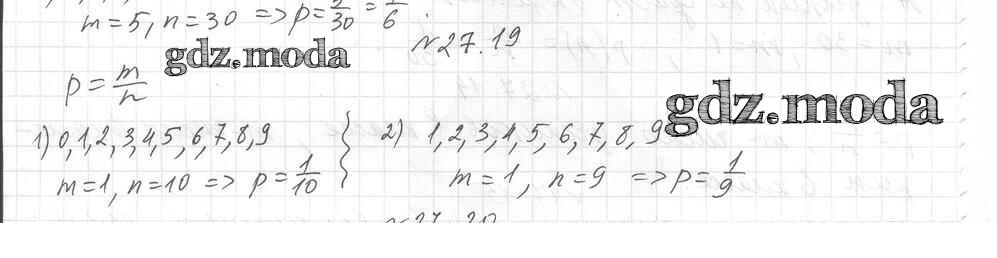 m=5, n=30 => p=5/30=1/6.
№27.19
gdz.moda
p=m/n
gdz.moda
1) 0,1,2,3,4,5,6,7,8,9
m=1, n=10 => p=1/10
2) 1,2,3,4,5,6,7,8,9
m=1, n=9 => p=1/9